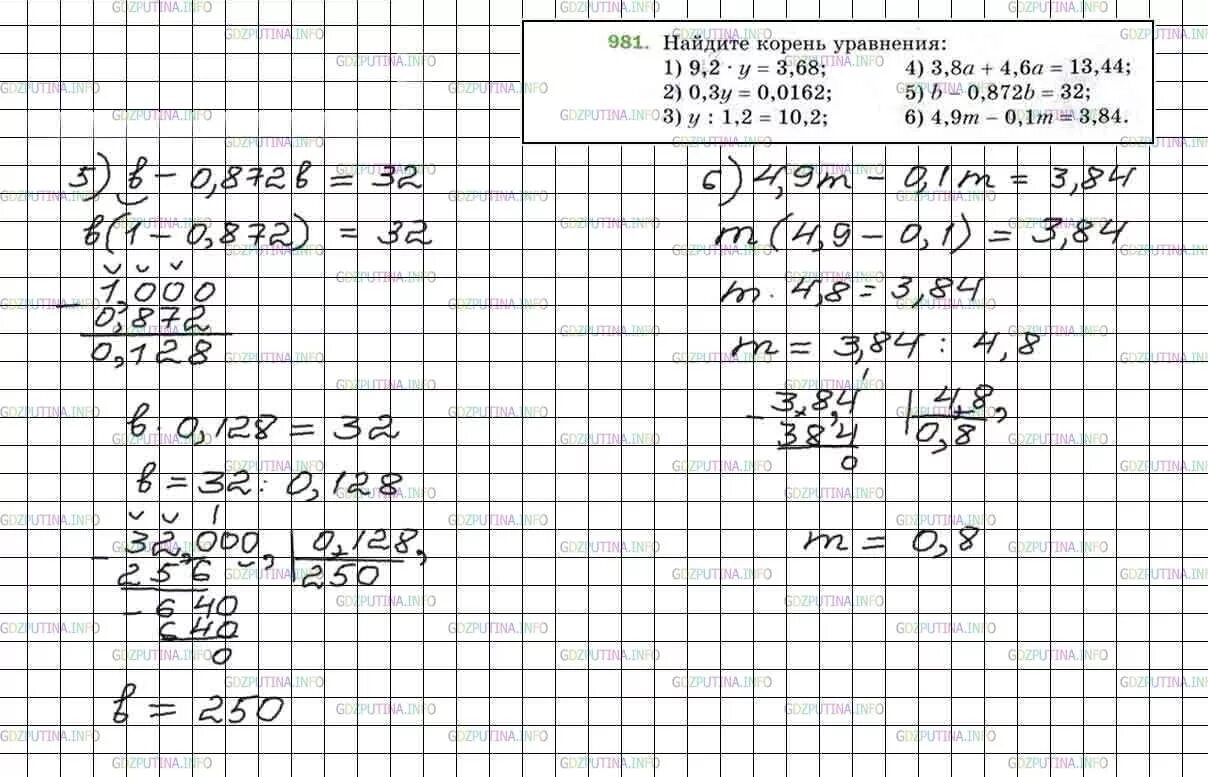 981. Найдите корень уравнения:
1) 9,2 · y = 3,68;
2) 0,3y = 0,0162;
3) y : 1,2 = 10,2;
4) 3,8a + 4,6a = 13,44;
5) b − 0,872b = 32;
6) 4,9m − 0,1m = 3,84.
5) в − 0,872в = 32
в(1 − 0,872) = 32
1,000
− 0,872
0,128
в · 0,128 = 32
в = 32 : 0,128
32,000, | 0,128,
− 256 | 250
− 640
640
0
в = 250
6) 4,9m − 0,1m = 3,84
m(4,9 − 0,1) = 3,84
m · 4,8 = 3,84
m = 3,84 : 4,8
− 3,8,4 | 4,8,
384 | 0,8
0
m = 0,8
GDZPUTINA.INFO